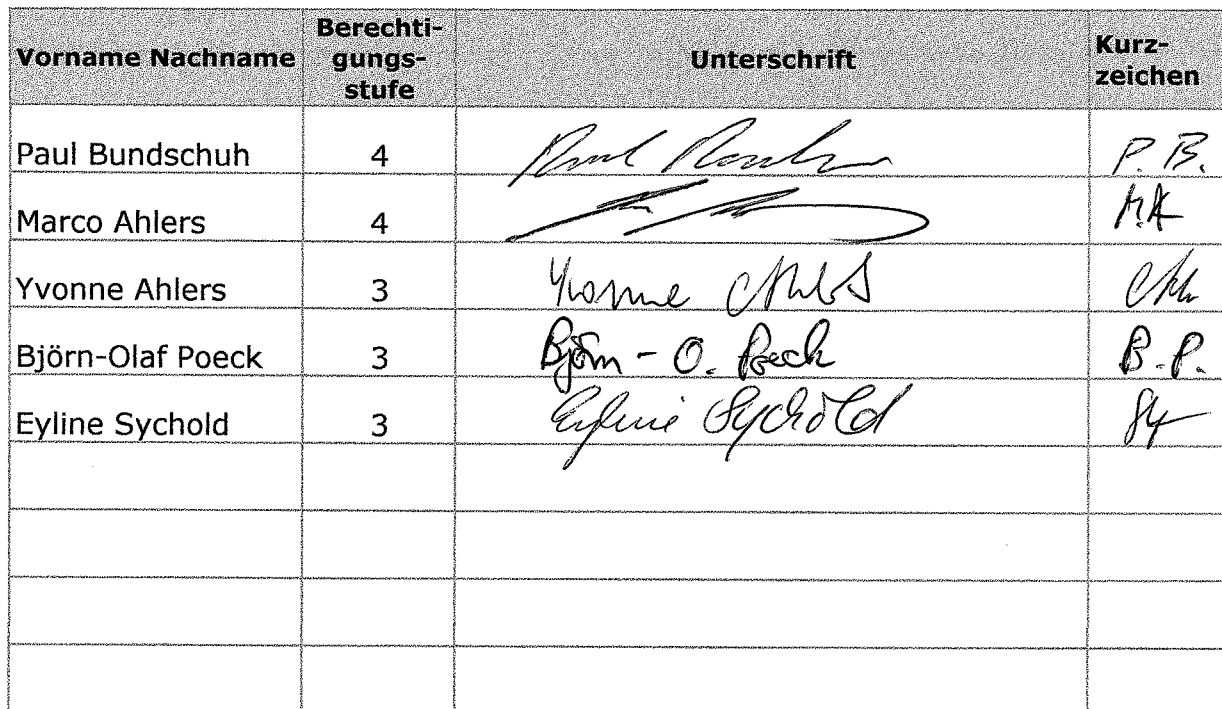 Vorname Nachname Berechti-gungs-stufe Unterschrift Kurz-zeichen
Paul Bundschuh 4 P. B.
Marco Ahlers 4 M.A
Yvonne Ahlers 3 Yvonne Ahlers Ah
Björn-Olaf Poeck 3 Björn - O. Poeck B.P.
Eyline Sychold 3 Eyline Sychold Sy